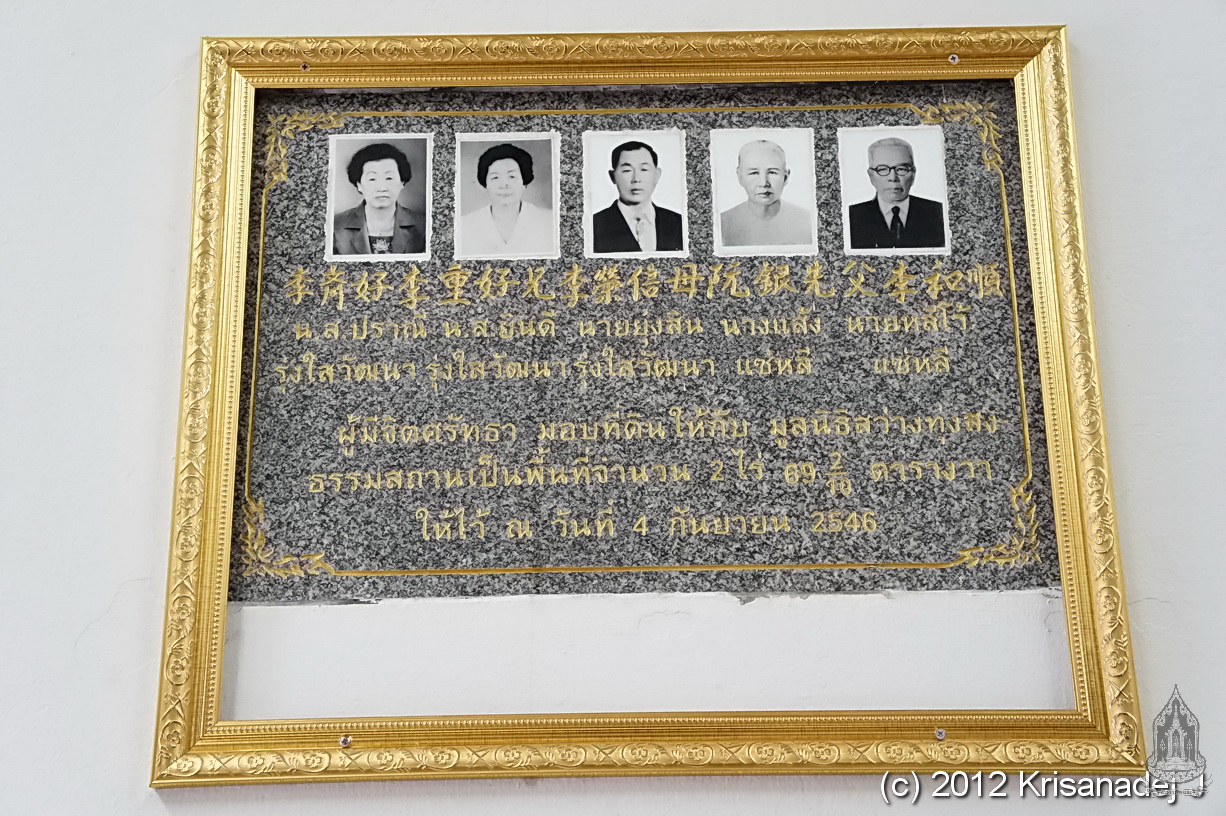 李齊好 李重好 兄李榮信 母阮銀 先父李和順
น.ส.ปราณี น.ส.ยินดี นายยุ่งสิน นางแส้ง นายหลีโว้
รุ่งใสวัฒนา รุ่งใสวัฒนา รุ่งใสวัฒนา แซ่หลี แซ่หลี
ผู้มีจิตศรัทธา มอบที่ดินให้กับ มูลนิธิสว่างทุ่งสง
ธรรมสถานเป็นพื้นที่จำนวน 2 ไร่ 69 2/10 ตารางวา
ให้ไว้ ณ วันที่ 4 กันยายน 2546
(c) 2012 Krisanadej J